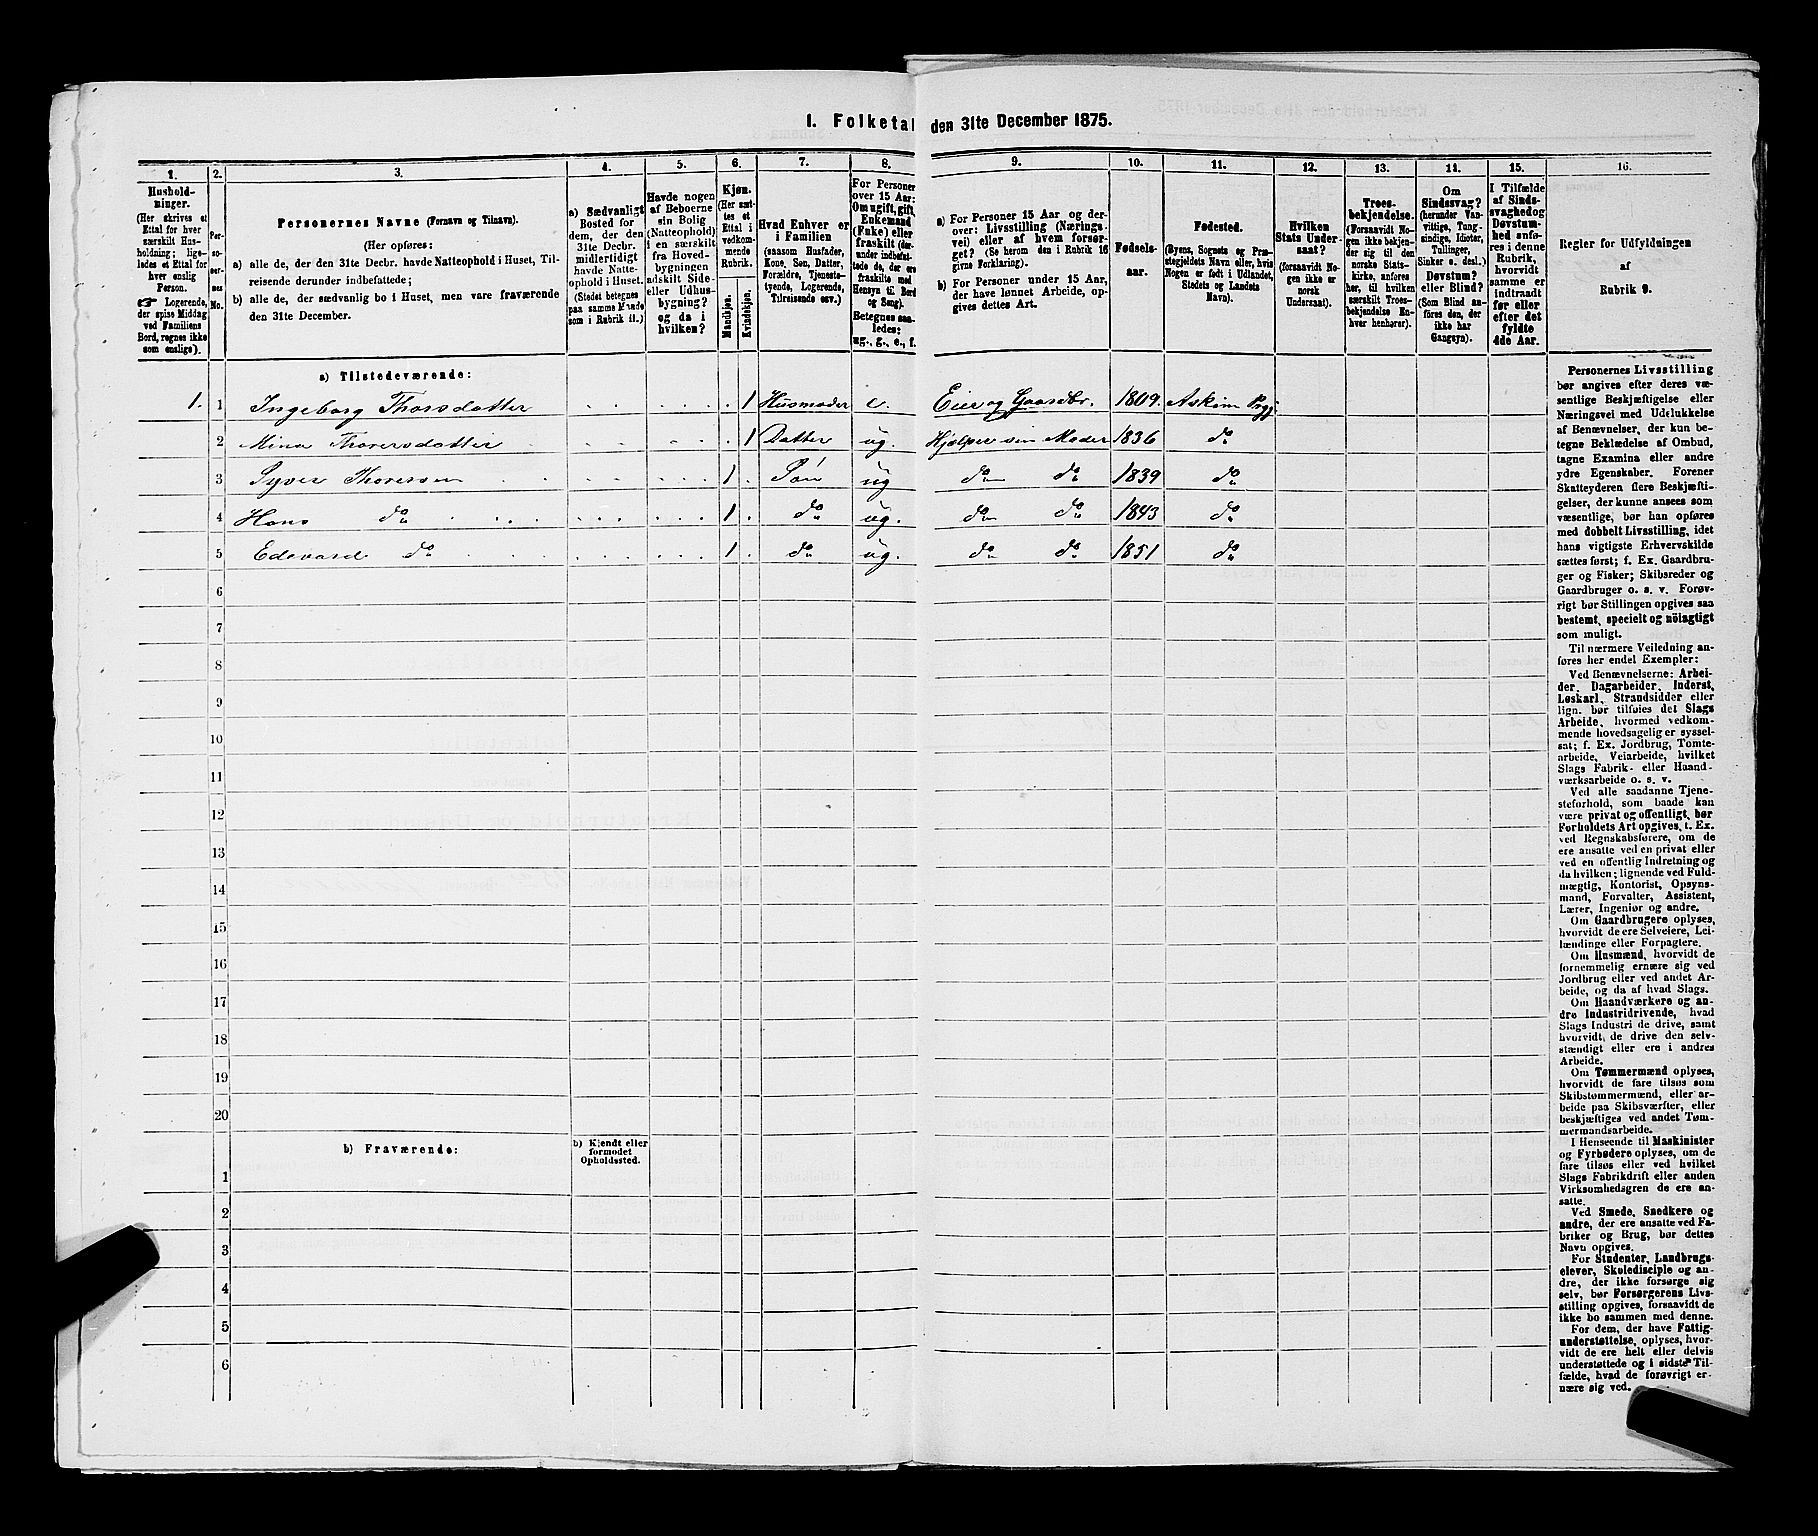 I. Folketal den 31te December 1875.
1.
Hushold-
ninger.
(Her skrives et
Ettal for hver
særskilt Hus-
holdning; lige-
ledes et Ettal for
hver enslig
Person.
Logerende,
der spise Middag
ved Familiens
Bord, regnes ikke
som enslige).
2.
Per-
so-
ner-
nes
No.
3.
Personernes Navne (Fornavn og Tilnavn).
(Her opføres:
a) alle de, der den 31te Decbr. havde Natteophold i Huset, Til-
reisende derunder indbefattede;
b) alle de, der sædvanlig bo i Huset, men vare fraværende
den 31te December.
4.
a) Sædvanligt
Bosted for
dem, der den
31te Decbr.
midlertidigt
havde Natte-
ophold i Huset.
(Stedet betegnes
paa samme Maade
som i Rubrik 11.)
5.
Havde nogen
af Beboerne
sin Bolig
(Natteophold)
i en særskilt
fra Hoved-
bygningen
adskilt Side-
eller Udhus-
bygning?
og da i
hvilken?
6.
Kjøn.
(Her sæt-
tes et
Ettal i
vedkom-
mende
Rubrik.
Mandkjøn.
Kvindekjøn.
7.
Hvad Enhver er
i Familien
(saasom Husfader,
Kone, Søn, Datter,
Forældre, Tjeneste-
tyende, Logerende,
Tilreisende osv.)
8.
For Personer
over 15 Aar:
Om ugift, gift,
Enkemand
(Enke) eller
fraskilt (der-
under indbefat-
tede de, der ere
fraskilte med
Hensyn til Bord
og Seng).
Betegnes saa-
ledes:
ug., g., e., f.
9.
a) For Personer 15 Aar og der-
over: Livsstilling (Nærings-
vei) eller af hvem forsør-
get? (Se herom den i Rubrik 16
givne Forklaring).
b) For Personer under 15 Aar,
der have lønnet Arbeide, op-
gives dettes Art.
10.
Fødsels-
aar.
11.
Fødested.
(Byens, Sognets og Præ-
stegjeldets Navn eller, hvis
Nogen er født i Udlandet,
Stedets og Landets
Navn).
12.
Hvilken
Stats Under-
saat?
(forsaavidt No-
gen ikke er
norsk
Undersaat).
13.
Troes-
bekjendelse.
(Forsaavidt No-
gen ikke bekjen-
der sig til den
norske Stats-
kirke, anføres
her, til hvilken
særskilt Troes-
bekjendelse En-
hver henhører).
14.
Om
Sindssvag?
(herunder Van-
vittige, Tung-
sindige, Idioter,
Tullinger,
Sinker o. desl.)
Døvstum?
eller Blind?
(Som Blind an-
føres den, der
ikke har
Gangsyn).
15.
I Tilfælde
af Sinds-
svaghed og
Døvstum-
hed anfø-
res i denne
Rubrik,
hvorvidt
samme er
indtraadt
før eller
efter det
fyldte
4de Aar.
16.
Regler for Udfyldningen
af
Rubrik 9.
a) Tilstedeværende:
1. 1 Ingeborg Thorsdatter 1 Husmoder e. Eier og Gaardbr. 1809. Askim Prgj
2 Mina Thorersdatter 1 Datter ug. Hjælper sin Moder 1836 do
3 Syver Thorersen 1 Søn ug do do 1839 do
4 Hans do 1 do ug. do do 1843 do
5 Edevard do 1 do ug. do do 1851 do
6
7
8
9
10
11
12
13
14
15
16
17
18
19
20
b) Fraværende:
b) Kjendt eller
formodet
Opholdssted.
1
2
3
4
5
6
Personernes Livsstilling
bør angives efter deres væ-
sentlige Beskjæftigelse eller
Næringsvei med Udelukkelse
af Benævnelser, der kun be-
tegne Beklædelse af Ombud,
tagne Examina eller andre
ydre Egenskaber. Forener
Skatteyderen flere Beskjæfti-
gelser, der kunne ansees som
væsentlige, bør han opføres
med dobbelt Livsstilling, idet
hans vigtigste Erhvervskilde
sættes først; f. Ex. Gaardbru-
ger og Fisker; Skibsreder og
Gaardbruger o. s. v. Forøv-
rigt bør Stillingen opgives saa
bestemt, specielt og nöiagtigt
som muligt.
Til nærmere Veiledning an-
føres her endel Exempler:
Ved Benævnelserne: Arbei-
der, Dagarbeider, Inderst,
Løskarl, Strandsidder eller
lign. bør tilføies det Slags
Arbeide, hvormed vedkom-
mende hovedsagelig er syssel-
sat; f. Ex. Jordbrug, Tomte-
arbeide, Veiarbeide, hvilket
Slags Fabrik- eller Haand-
værksarbeide o. s. v.
Ved alle saadanne Tjene-
steforhold, som baade kan
være privat og offentligt, bør
Forholdets Art opgives, t. Ex.
ved Regnskabsførere, om de
ere ansatte ved en privat eller
ved en offentlig Indretning og
da hvilken; lignende ved Fuld-
mægtig, Kontorist, Opsyns-
mand, Forvalter, Assistent,
Lærer, Ingeniør og andre.
Om Gaardbrugere oplyses,
hvorvidt de ere Selveiere, Lei-
lændinge eller Forpagtere.
Om Husmænd, hvorvidt de
fornemmelig ernære sig ved
Jordbrug eller ved andet Ar-
beide, og da af hvad Slags.
Om Haandværkere og an-
dre Industridrivende, hvad
Slags Industri de drive, samt
hvorvidt, de drive den selv-
stændigt eller ere i andres
Arbeide.
Om Tømmermænd oplyses,
hvorvidt de fare tilsøs som
Skibstømmermænd, eller ar-
beide paa Skibsværfter, eller
beskjæftiges ved andet Tøm-
mermandsarbeide.
I Henseende til Maskinister
og Fyrbødere oplyses, om de
fare tilsøs eller ved hvilket
Slags Fabrikdrift eller anden
Virksomhedsgren de ere an-
satte.
Ved Smede, Snedkere og
andre, der ere ansatte ved Fa-
briker og Brug, bør dettes
Navn opgives.
For Studenter, Landbrugs-
elever, Skoledisciple og an-
dre, der ikke forsørge sig
selv, bør Forsørgerens Livs-
stilling opgives, forsaavidt de
ikke bo sammen med denne.
For dem, der have Fattig-
understøttelse, oplyses, hvor-
vidt de ere helt eller delvis
understøttede og i sidste Til-
fælde, hvad de forøvrigt er-
nære sig ved.